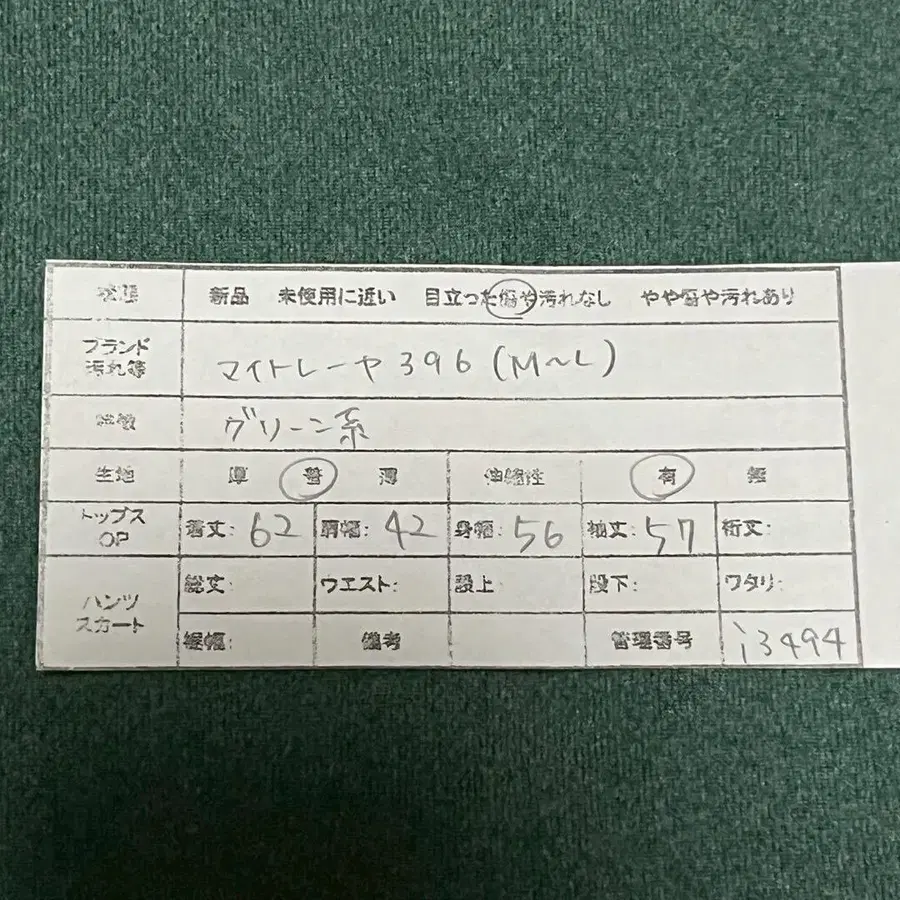 状態 新品 未使用に近い 目立った傷や汚れなし やや傷や汚れあり
ブランド
汚れ等
マイトレーヤ 396 (M～L)
特徴 グリーン系
生地 厚 普 薄 伸縮性 有 無
トップス
OP
着丈: 62 肩幅: 42 身幅: 56 袖丈: 57 裄丈:
パンツ
スカート
総丈: ウエスト: 股上 股下: ワタリ:
裾幅: 備考 管理番号 i3494